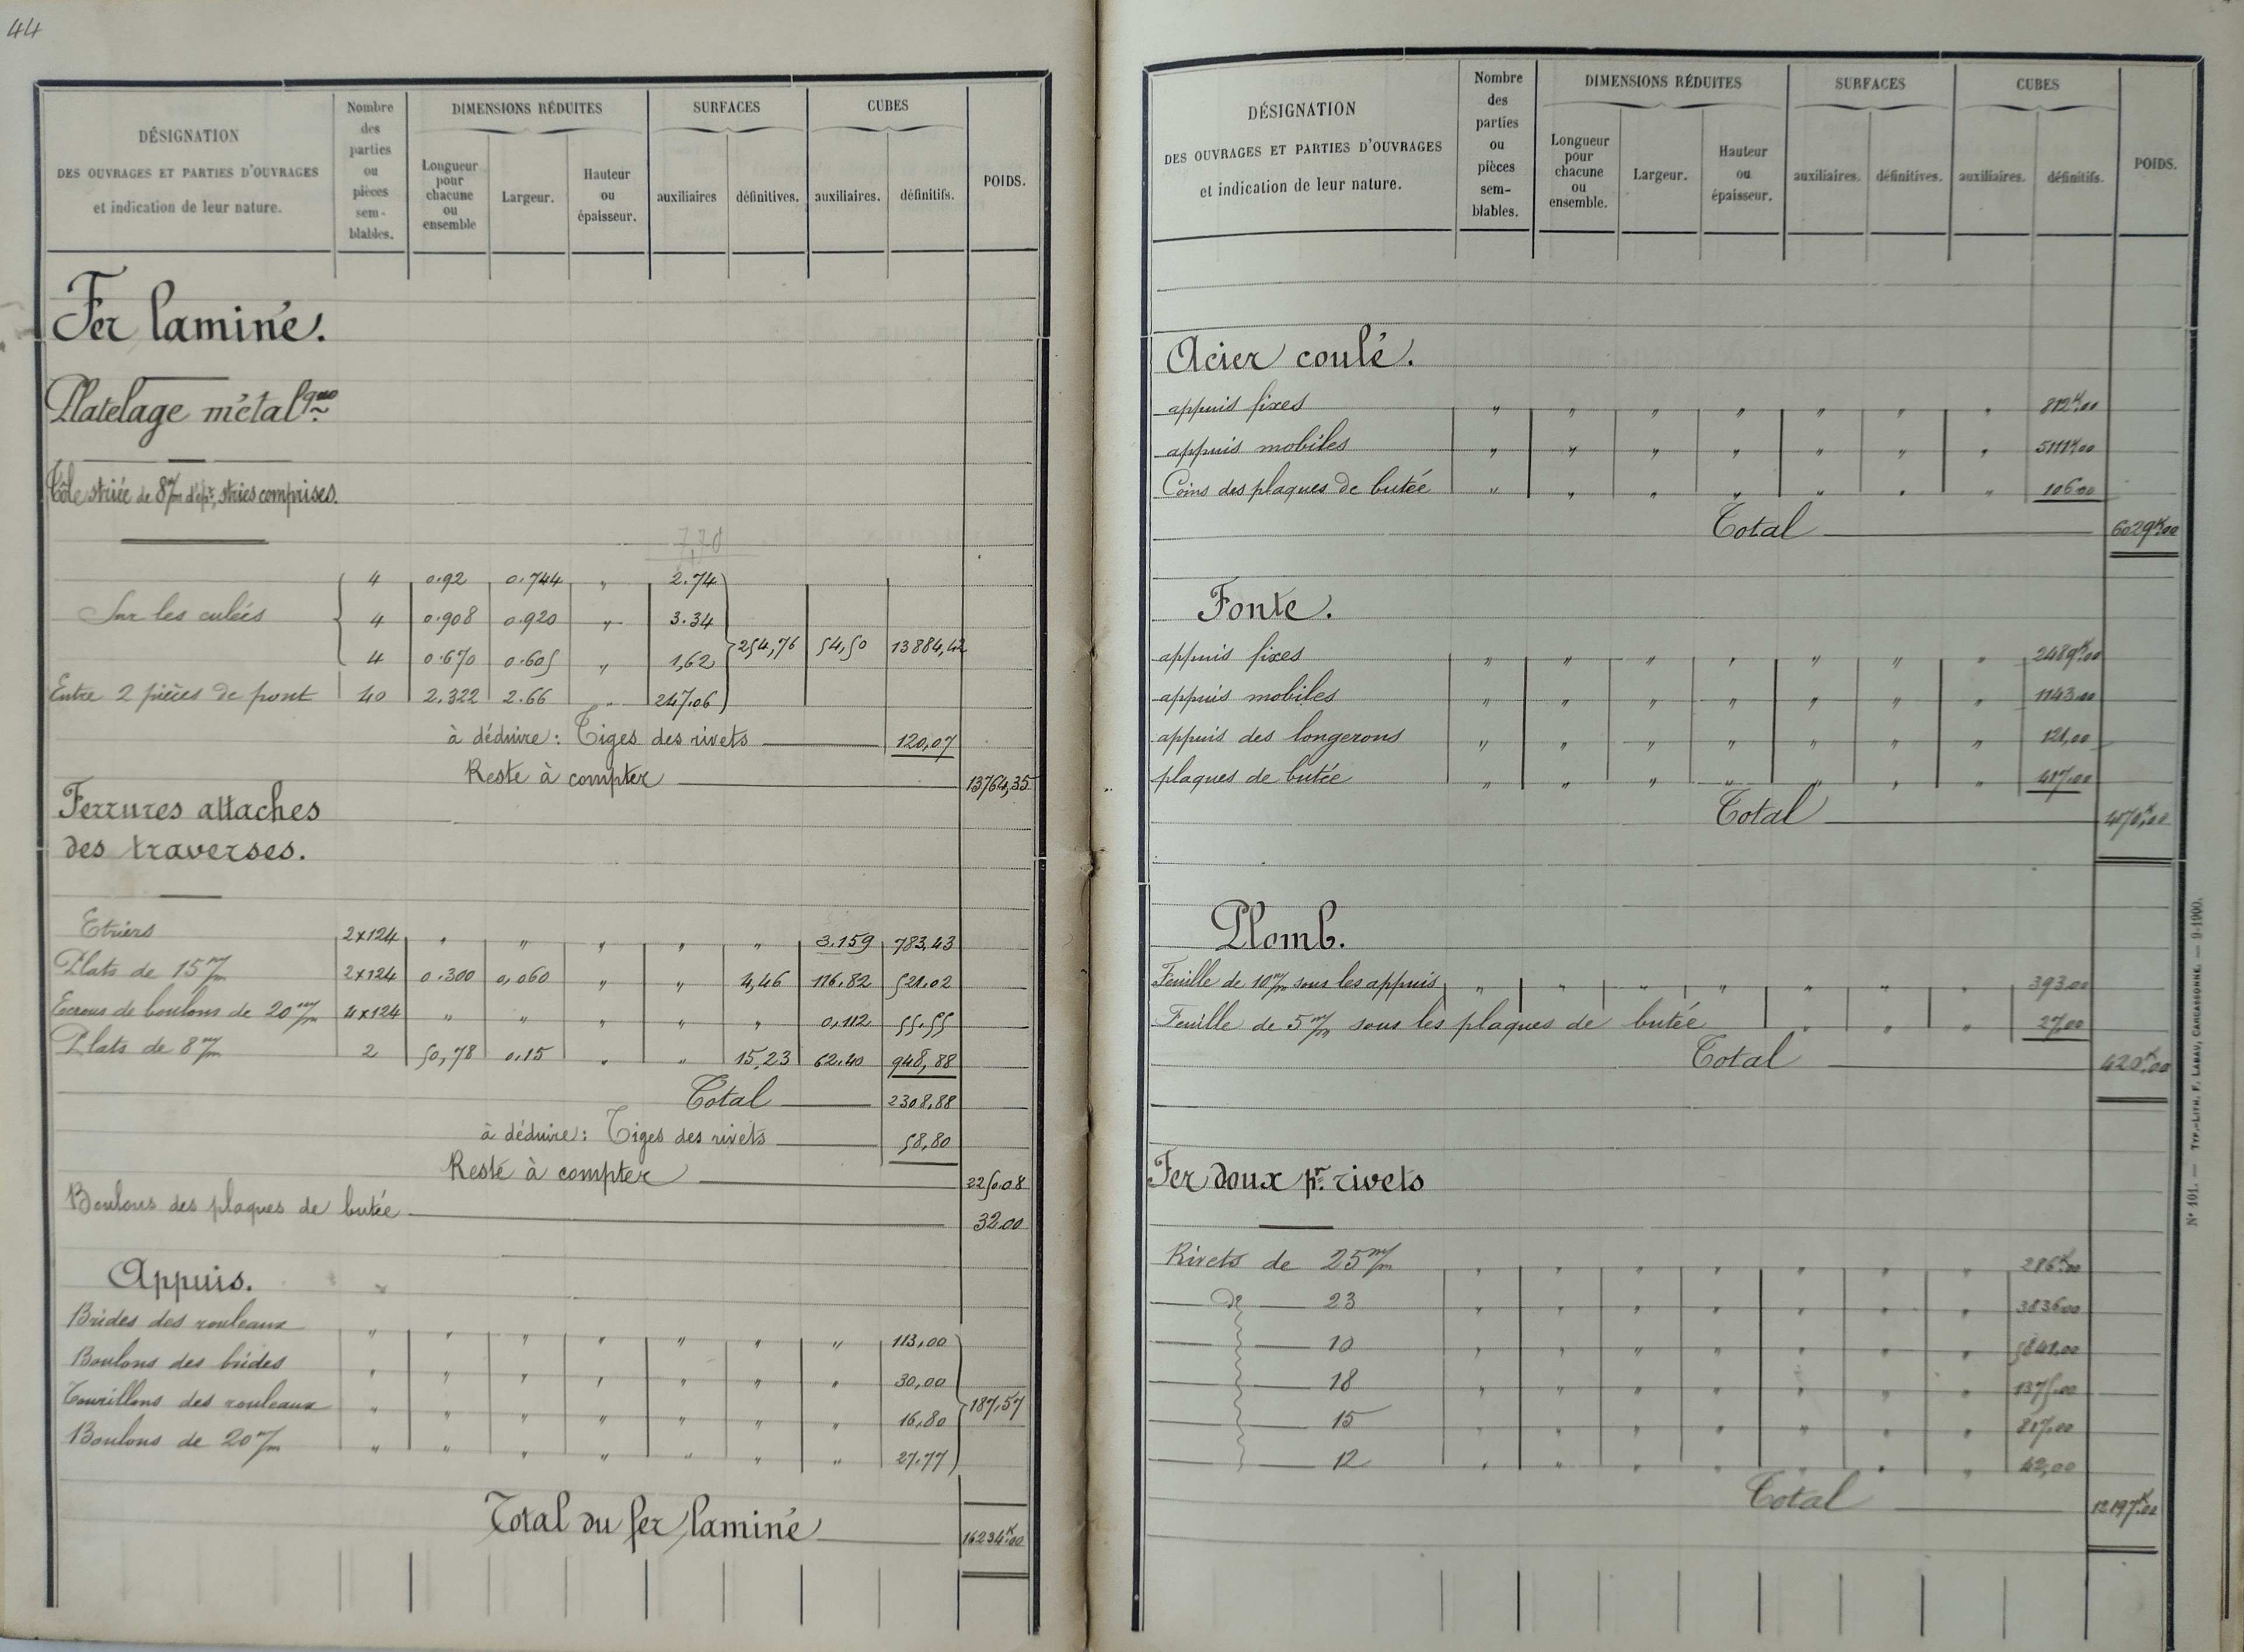 44
DÉSIGNATION
DES OUVRAGES ET PARTIES D'OUVRAGES
et indication de leur nature.
Nombre des parties ou pièces sem-blables.
DIMENSIONS RÉDUITES
Longueur pour chacune ou ensemble
Largeur.
Hauteur ou épaisseur.
SURFACES
auxiliaires
définitives.
CUBES
auxiliaires.
définitifs.
POIDS.
Fer laminé.
Platelage métalque
Tôle striée de 8m/m d'épr, stries comprises.
7,70
4 0.92 0.744 " 2.74
Sur les culées 4 0.908 0.920 " 3.34
254,76 54,50 13884,42
4 0.670 0.605 " 1,62
Entre 2 pièces de pont 40 2.322 2.66 " 247.06
à déduire: Tiges des rivets 120,07
Reste à compter 13764,35
Ferrures attaches
des traverses.
Etriers 2x124 " " " " " 3.159 783,43
Plats de 15m/m 2x124 0.300 0,060 " " 4,46 116.82 521.02
Ecrous de boulons de 20m/m 4x124 " " " " " 0,112 55.55
Plats de 8m/m 2 50,78 0.15 " " 15,23 62.40 948,88
Total 2308,88
à déduire: Tiges des rivets 58,80
Reste à compter 2250.08
Boulons des plaques de butée 32.00
Appuis.
Brides des rouleaux " " " " " " " 113,00
Boulons des brides " " " " " " " 30,00
Tourillons des rouleaux " " " " " " " 16,80
187,57
Boulons de 20m/m " " " " " " " 27.77
Total du fer laminé 16234K,00
DÉSIGNATION
DES OUVRAGES ET PARTIES D'OUVRAGES
et indication de leur nature.
Nombre des parties ou pièces sem-blables.
DIMENSIONS RÉDUITES
Longueur pour chacune ou ensemble.
Largeur.
Hauteur ou épaisseur.
SURFACES
auxiliaires.
définitives.
CUBES
auxiliaires.
définitifs.
POIDS.
Acier coulé.
appuis fixes " " " " " " " 812K,00
appuis mobiles " " " " " " " 5111K00
Coins des plaques de butée " " " " " " " 106.00
Total 6029K.00
Fonte.
appuis fixes " " " " " " " 2489K.00
appuis mobiles " " " " " " " 1143.00
appuis des longerons " " " " " " " 121,00
plaques de butée " " " " " " " 417.00
Total 4170K,00
Plomb.
Feuille de 10m/m sous les appuis " " " " " " " 393.00
Feuille de 5m/m sous les plaques de butée " " " 27,00
Total 420K.00
Fer doux pr. rivets
Rivets de 25m/m " " " " " " " 286K.00
do 23 " " " " " " " 3836.00
10 " " " " " " " 5841.00
18 " " " " " " " 1375.00
15 " " " " " " " 817.00
12 " " " " " " " 42,00
Total 12197K.00
N° 101. — TYP.-LITH. F. LABAU, CARCASSONNE. — 9-1900.